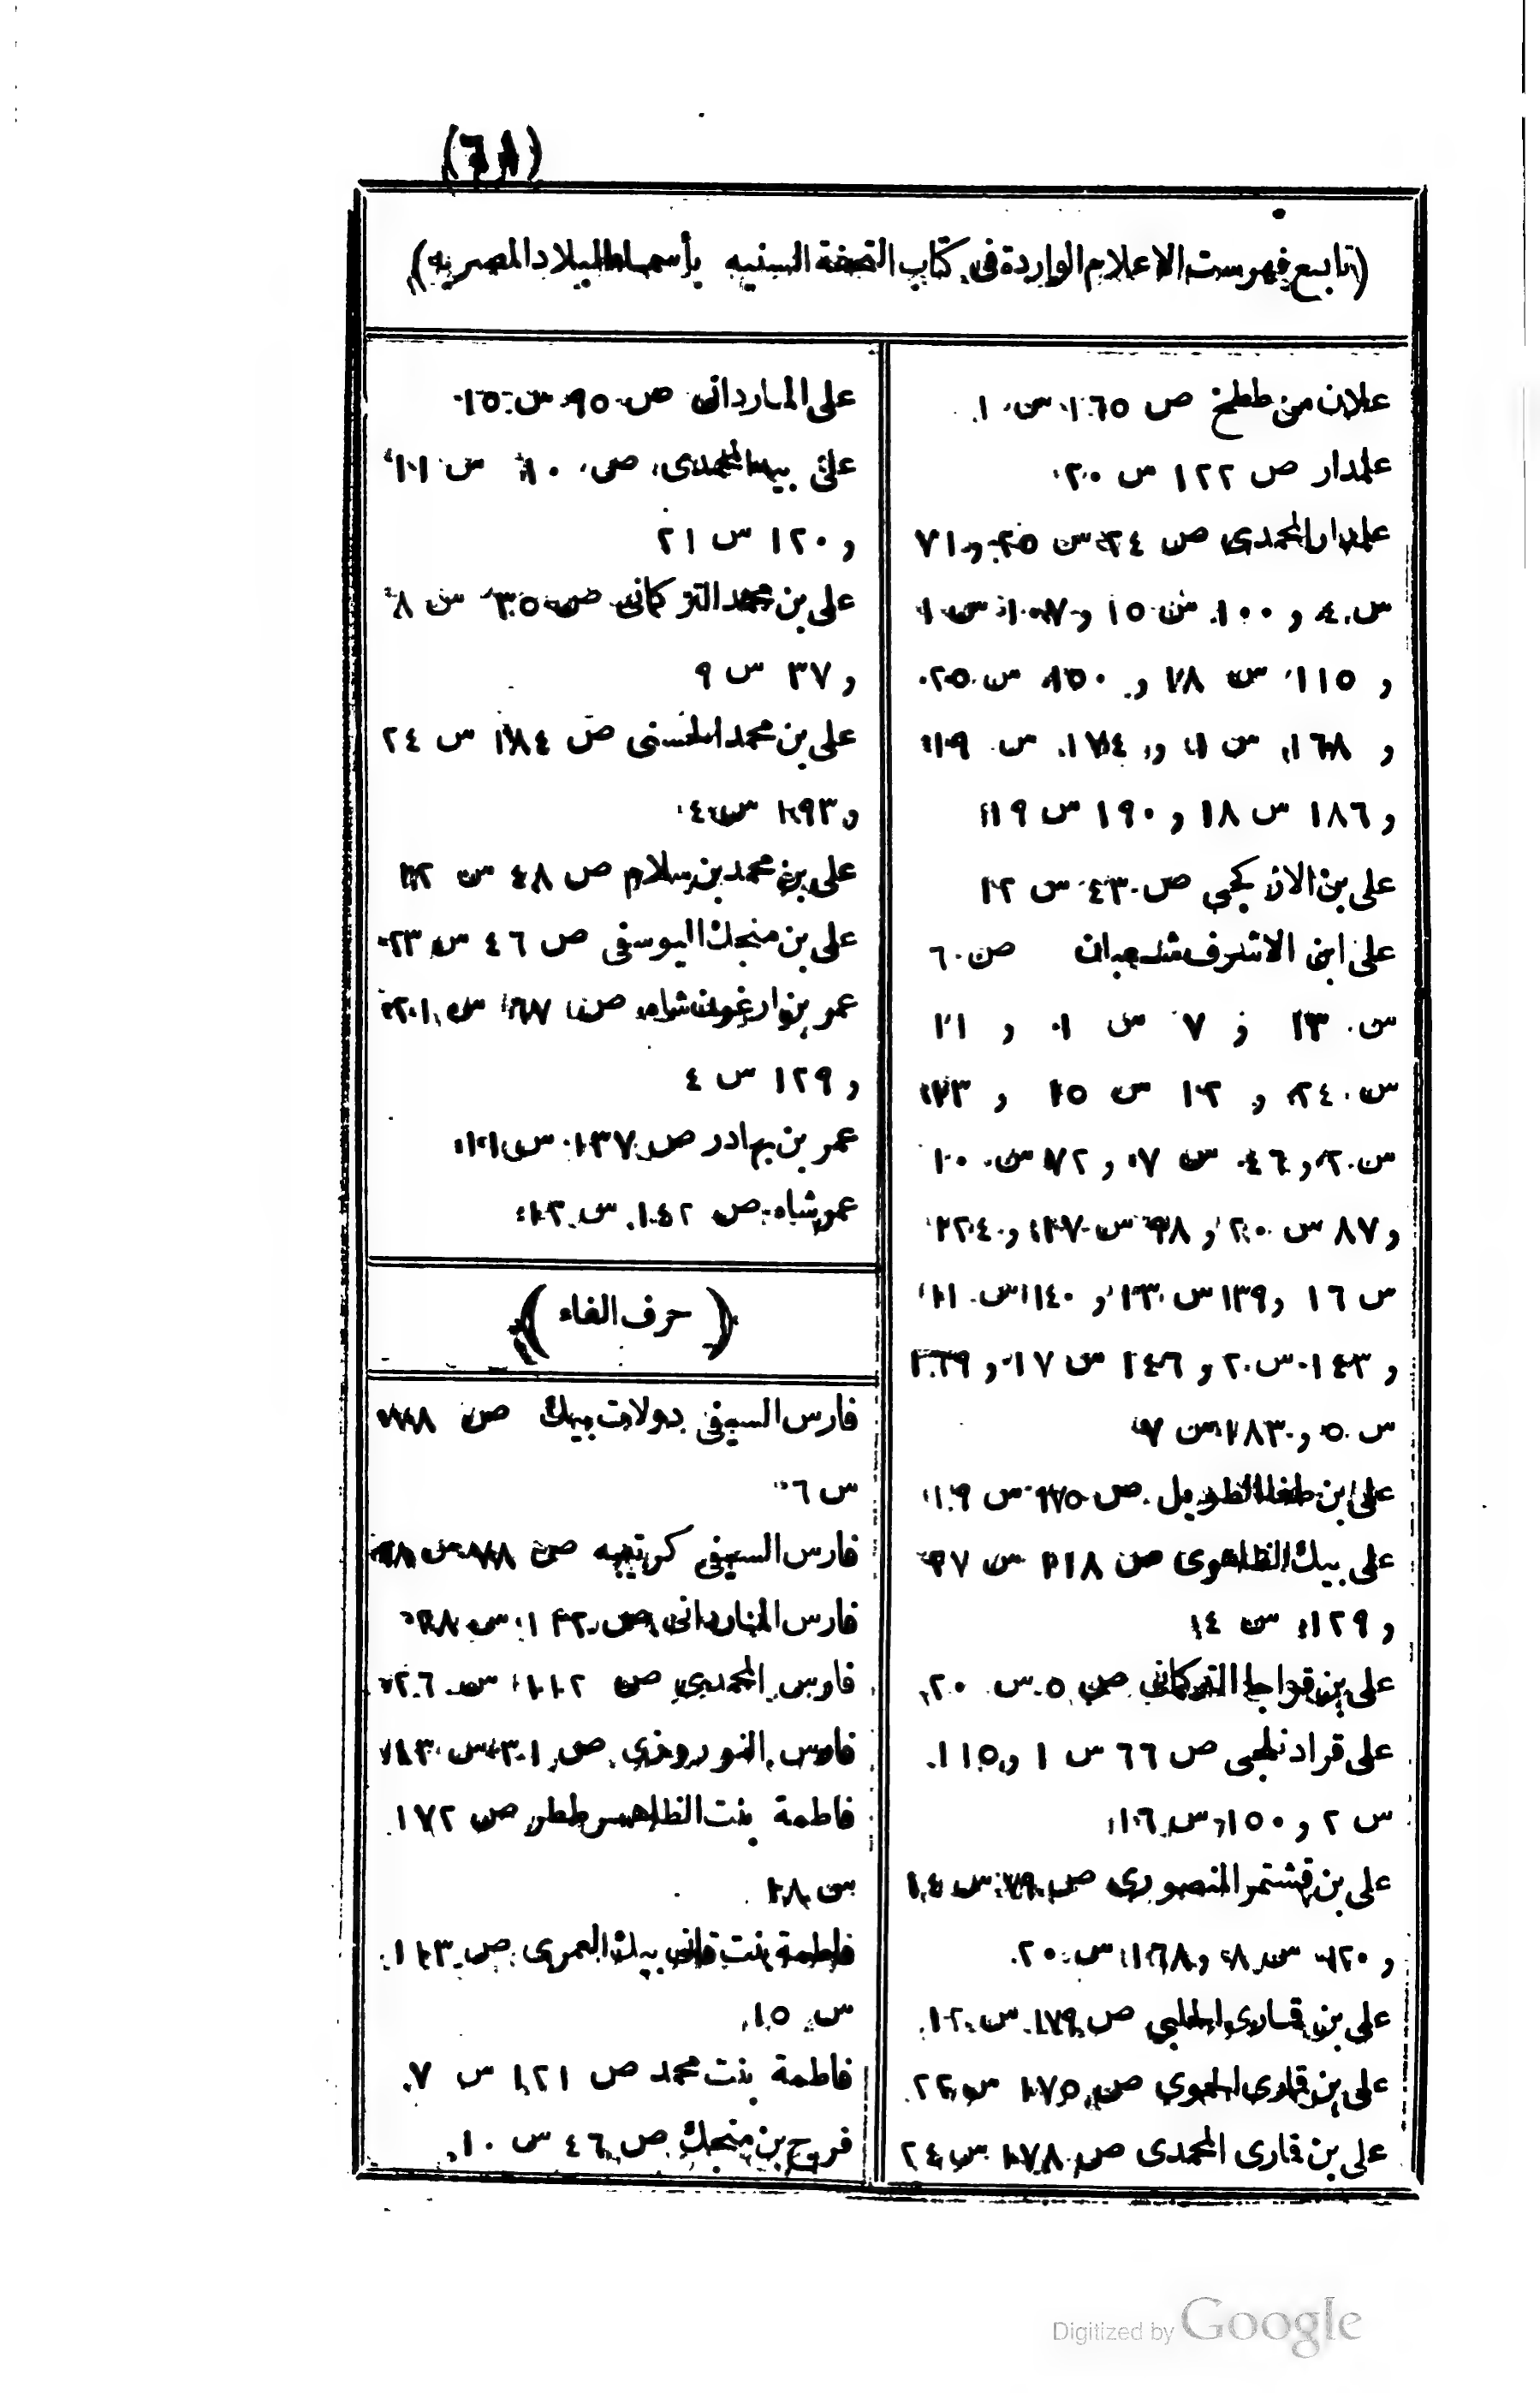 (٦٨)
(تابع فهرست الاعلام الواردة فى كتاب التحفة السنيه بأسماء البلاد المصريه)
علان من ططخ ص ١٦٥ س ١
علمدار ص ١٢٢ س ٢٠
علمدار المحمدى ص ٢٤ س ٢٥ و ٧١
س ٤ و ١٠٠ س ١٥ و ١٠٧ س ١
و ١١٥ س ٢٨ و ١٥٠ س ٢٥
و ١٦٨ س ١ و ١٧٤ س ١٩
و ١٨٦ س ١٨ و ١٩٠ س ١٩
على بن الازكجى ص ٤٣ س ١٢
على ابن الاشرف شعبان ص ٦
س ١٣ و ٧ س ١ و ١١
س ٢٤ و ١٢ س ١٥ و ٢٣
س ٢٠ و ٤٦ س ٧ و ٧٢ س ١٠
و ٨٧ س ٢٠ و ٩٨ س
س ١٦ و ١٣٩ س ٢٣ و ١٤٠ س
و ١٤٣ س ٢٠ و ١٤٦ س ١٧ و ١٦٩
س ٥ و ١٨٣ س ٧
على بن طغا الطويل ص ١٧٥ س ١٩
على بيك الظاهرى ص ١١٨ س
و ١٢٩ س ١٤
على بن قراجا التركمانى ص ٥ س ٢٠
على قراد نلجى ص ٦٦ س ١ و ١١٥
س ٢ و ١٥٠ س ١٦
على بن قشتمر المنصورى ص ٧٩ س ١٤
و ١٢٠ س ٨ و ١٦٨ س ٢٠
على بن قمارى الحلبى ص ١٧٩ س ١٢
على بن قمارى الحموى ص ١٧٥ س ٢٢
على بن قارى المحمدى ص ١٧٨ س ٢٤
على الماردانى ص ٩٥ س ١٥
على بيه المحمدى ص ١٠ س ١١
و ١٢٠ س ٢١
على بن محمد التركمانى ص ٣٥ س ٨
و ٣٧ س ٩
على بن محمد الحسنى ص ١٨٤ س ٢٤
و ١٩٣ س ٤
على بن محمد بن سلام ص ٤٨ س ١٢
على بن منجك اليوسفى ص ٤٦ س ٢٣
عمر بن ارغون شاه ص ٦٧ س
و ١٢٩ س ٤
عمر بن بهادر ص ١٣٧ س ١١
عمر شاه ص ١٤٢ س ١٢
(حرف الفاء)
فارس السيفى دولات بيك ص
س ٦
فارس السيفى كرتبيه ص
فارس الماردانى ص ١٤٢ س ١٨
فارس المحمدى ص ١١٢ س ٢٦
فارس النوروزى ص
فاطمة بنت الظاهر ططر ص ١٧٢
س ١٨
فاطمة بنت قانى بيك العمرى ص ١١٣
س ١٥
فاطمة بنت محمد ص ١٢١ س ٧
فرج بن منجك ص ٤٦ س ١٠
Digitized by Google